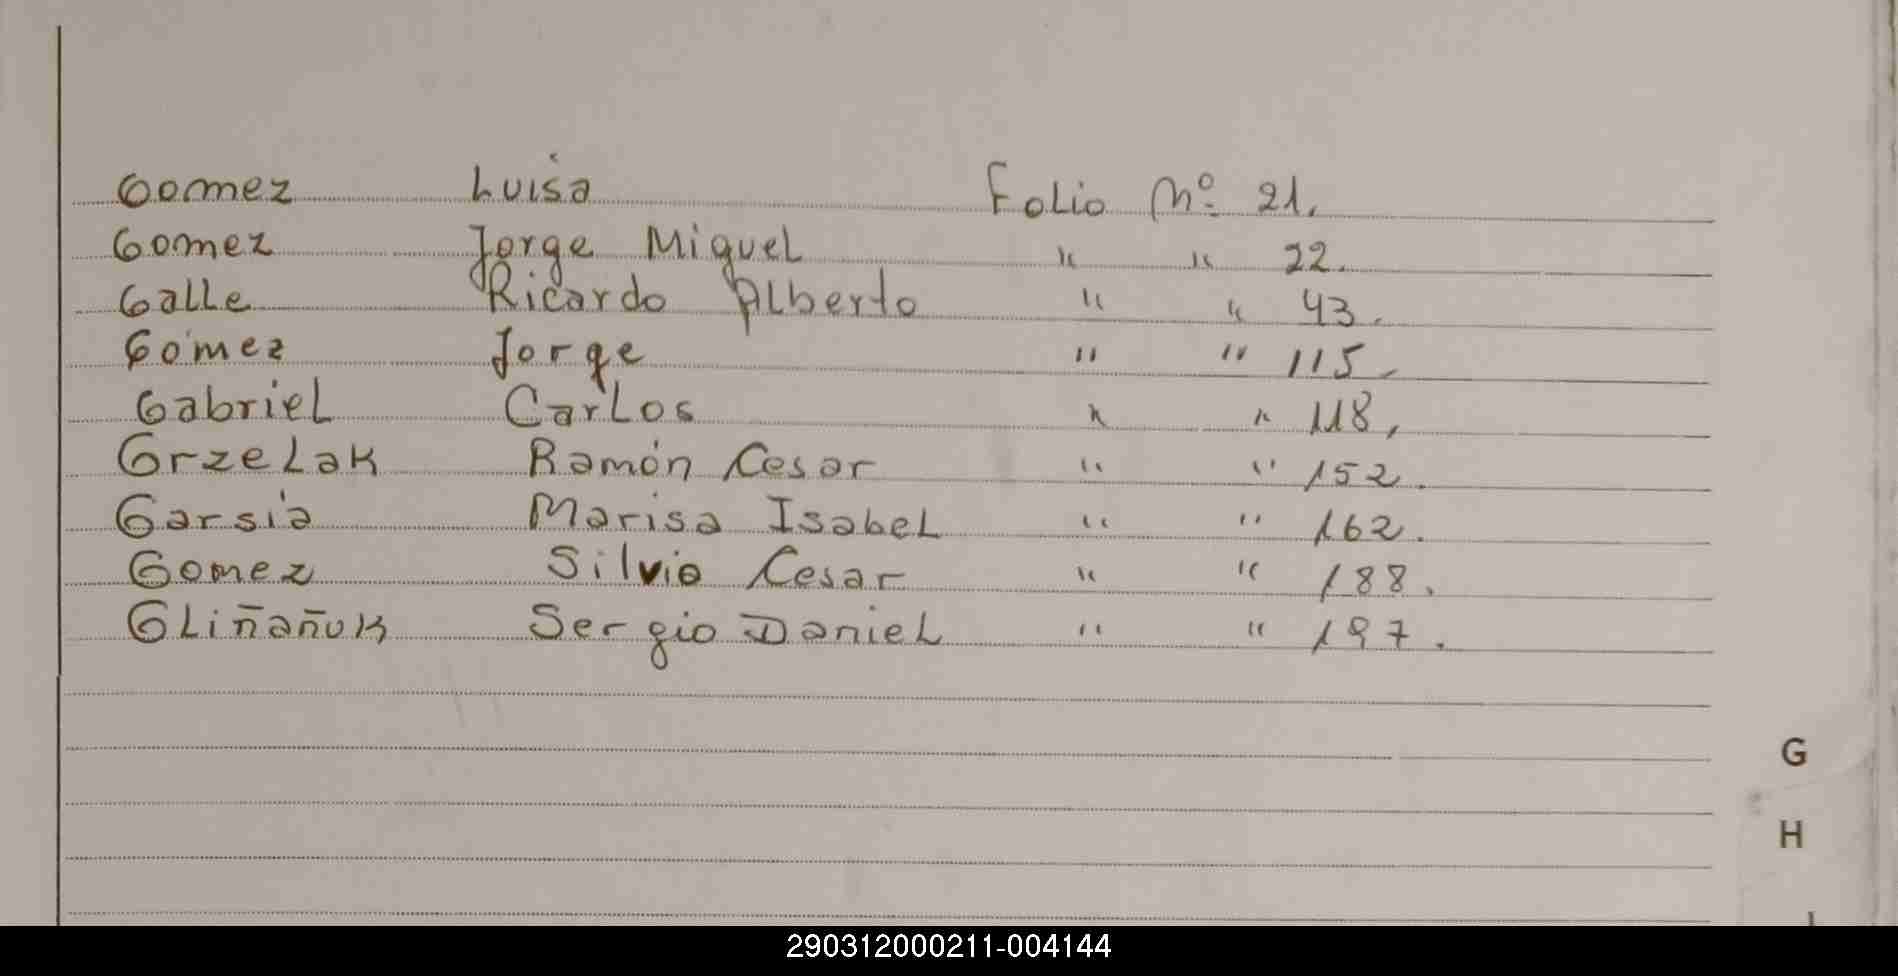 Gomez Luisa Folio Nº 21.
Gomez Jorge Miguel " " 22.
Galle Ricardo Alberto " " 43.
Gómez Jorge " " 115.
Gabriel Carlos " " 118,
Grzelak Ramón Cesar " " 152.
Garsía Marisa Isabel " " 162.
Gomez Silvio Cesar " " 188.
Gliñañuk Sergio Daniel " " 197.
G
H
290312000211-004144